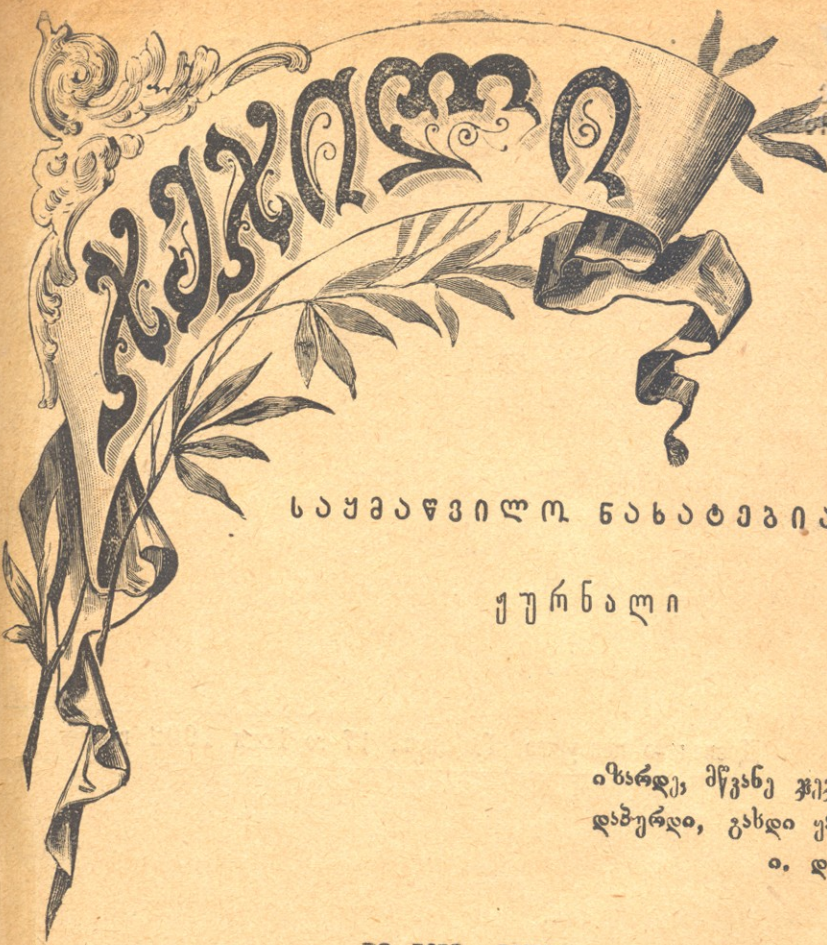 ჯეჯილი
საყმაწვილო ნახატებია
ჟურნალი
იზარდე, მწვანე ჯეჯ
დაპურდი, გახდი ყა
ი. დ